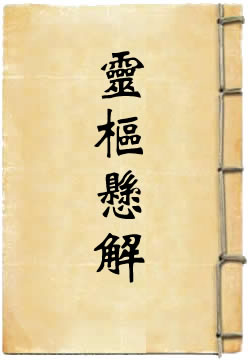 靈樞懸解